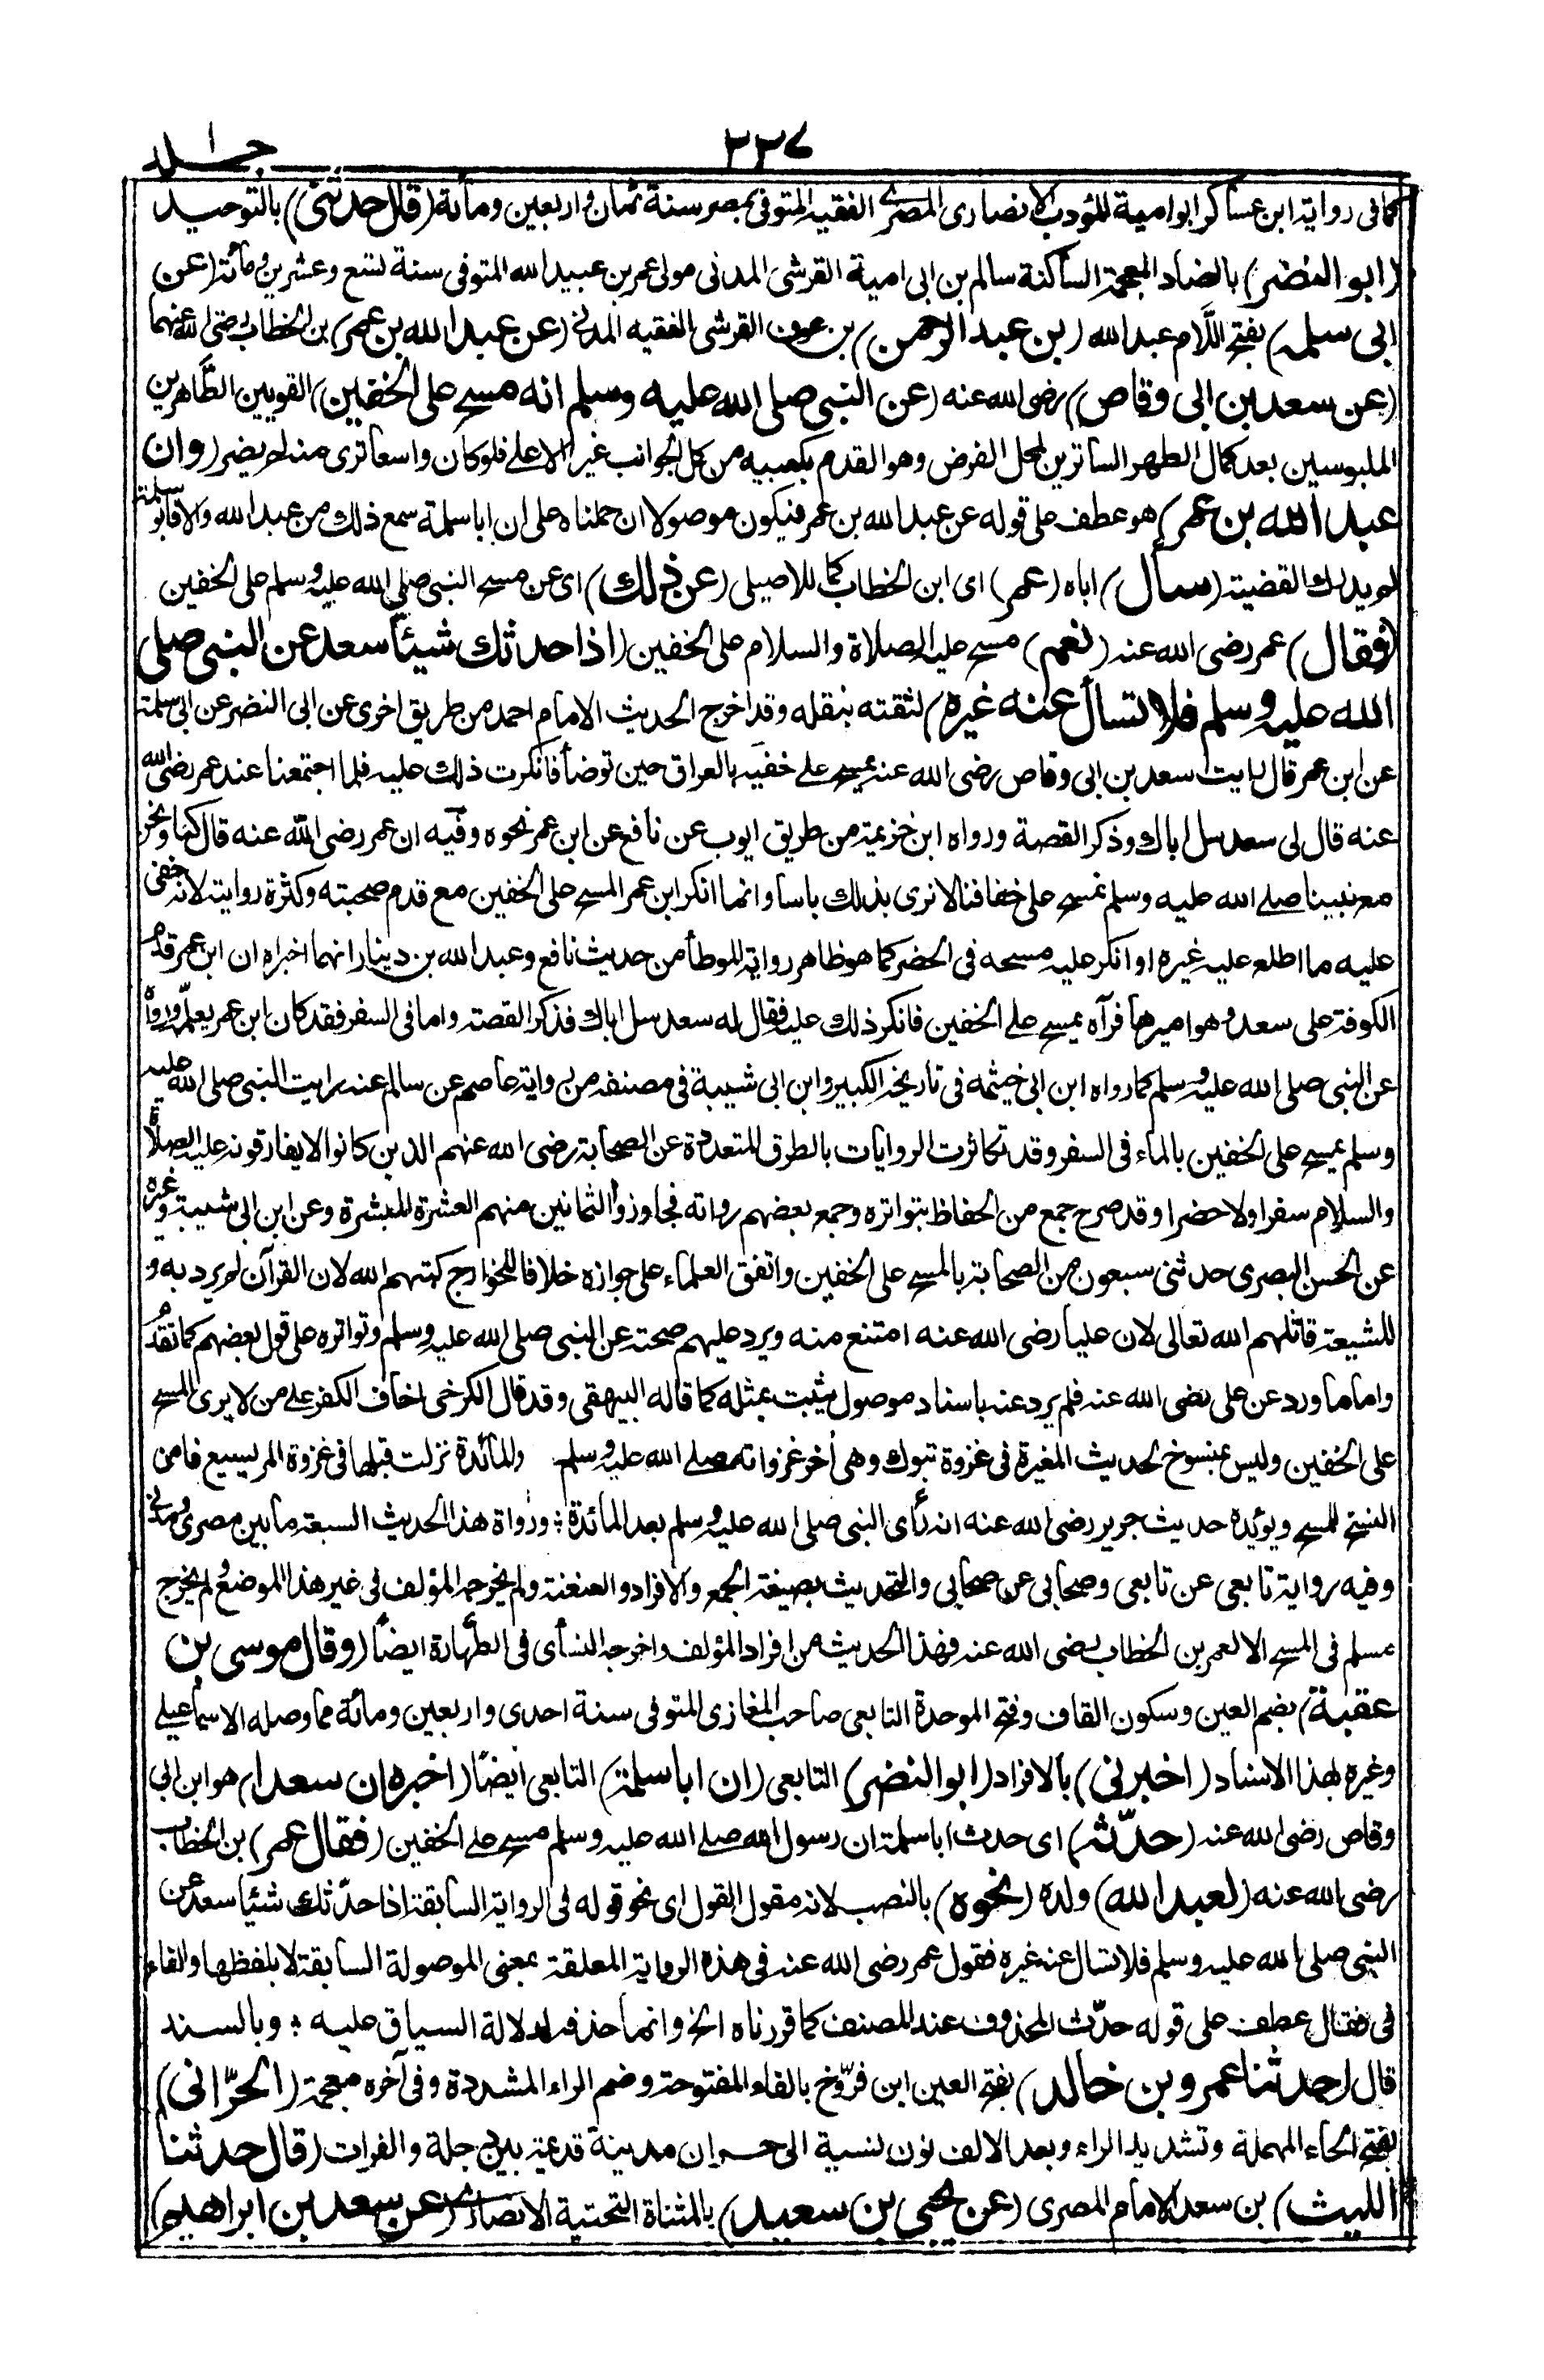 ٢٣٧
جلد ١
كما فى رواية ابن عساكر ابو امية المؤدب الانصارى المصرى الفقيه المتوفى بمصر سنة ثمان واربعين ومائة (قال حدثنى) بالتوحيد
(ابو النضر) بالضاد المعجمة الساكنة سالم بن ابى امية القرشى المدنى مولى عمر بن عبيد الله المتوفى سنة تسع وعشرين ومائة (عن
ابى سلمة) بفتح اللام عبد الله (بن عبد الرحمن) بن عوف القرشى الفقيه المدنى (عن عبد الله بن عمر) بن الخطاب رضى الله عنهما
(عن سعد بن ابى وقاص) رضى الله عنه (عن النبى صلى الله عليه وسلم انه مسح على الخفين) القويين الطاهرين
الملبوسين بعد كمال الطهر الساترين لمحل الفرض وهو القدم بكعبيه من كل الجوانب غير الاعلى فلو كان واسعا ترى منه لم يضر (وان
عبد الله بن عمر) هو عطف على قوله عن عبد الله بن عمر فيكون موصولا ان حملناه على ان ابا سلمة سمع ذلك من عبد الله والا فابو سلمة
لم يدرك القضية (سأل) اباه (عمر) اى ابن الخطاب كما للاصيلى (عن ذلك) اى عن مسح النبى صلى الله عليه وسلم على الخفين
(فقال) عمر رضى الله عنه (نعم) مسح عليه الصلاة والسلام على الخفين (اذا حدثك شيئا سعد عن النبى صلى
الله عليه وسلم فلا تسأل عنه غيره) لثقته بنقله وقد اخرج الحديث الامام احمد من طريق اخرى عن ابى النضر عن ابى سلمة
عن ابن عمر قال رايت سعد بن ابى وقاص رضى الله عنه يمسح على خفيه بالعراق حين توضأ فانكرت ذلك عليه فلما اجتمعنا عند عمر رضى الله
عنه قال لى سعد سل اباك وذكر القصة ورواه ابن خزيمة من طريق ايوب عن نافع عن ابن عمر نحوه وفيه ان عمر رضى الله عنه قال كنا ونحن
مع نبينا صلى الله عليه وسلم نمسح على خفافنا لا نرى بذلك باسا وانما انكر ابن عمر المسح على الخفين مع قدم صحبته وكثرة روايته لانه خفى
عليه ما اطلع عليه غيره او انكر عليه مسحه فى الحضر كما هو ظاهر رواية الموطأ من حديث نافع وعبد الله بن دينار انهما اخبراه ان ابن عمر قدم
الكوفة على سعد وهو اميرها فرآه يمسح على الخفين فانكر ذلك عليه فقال له سعد سل اباك فذكر القصة واما فى السفر فقد كان ابن عمر يعلمه ورواه
عن النبى صلى الله عليه وسلم كما رواه ابن ابى خيثمه فى تاريخه الكبير وابن ابى شيبة فى مصنفه من رواية عاصم عن سالم عنه رايت النبى صلى الله عليه
وسلم يمسح على الخفين بالماء فى السفر وقد تكاثرت الروايات بالطرق المتعددة عن الصحابة رضى الله عنهم الذين كانوا لا يفارقونه عليه الصلاة
والسلام سفرا ولا حضرا وقد صرح جمع من الحفاظ بتواتره وجمع بعضهم رواته فجاوزوا الثمانين منهم العشرة المبشرة وعن ابن ابى شيبة وغيره
عن الحسن البصرى حدثنى سبعون من الصحابة بالمسح على الخفين واتفق العلماء على جوازه خلافا للخوارج كبتهم الله لان القرآن لم يرد به و
للشيعة قاتلهم الله تعالى لان عليا رضى الله عنه امتنع منه ويرد عليهم صحته عن النبى صلى الله عليه وسلم وتواتره على قول بعضهم كما تقدم
واما ما ورد عن على رضى الله عنه فلم يرد عنه باسناد موصول يثبت بمثله كما قاله البيهقى وقد قال الكرخى اخاف الكفر على من لا يرى المسح
على الخفين وليس بمنسوخ لحديث المغيرة فى غزوة تبوك وهى أخر غزواته صلى الله عليه وسلم والمائدة نزلت قبلها فى غزوة المريسيع فامن
النسخ للمسح ويؤيده حديث جرير رضى الله عنه انه رأى النبى صلى الله عليه وسلم بعد المائدة ؛ ورواة هذا الحديث السبعة ما بين مصرى ومدنى
وفيه رواية تابعى عن تابعى وصحابى عن صحابى والتحديث بصيغة الجمع والافراد والعنعنة ولم يخرجه المؤلف فى غير هذا الموضع ولم يخرج
مسلم فى المسح الا لعمر بن الخطاب رضى الله عنه فهذا الحديث من افراد المؤلف واخرجه النسأى فى الطهارة ايضا (وقال موسى بن
عقبة) بضم العين وسكون القاف وفتح الموحدة التابعى صاحب المغازى المتوفى سنة احدى واربعين ومائة مما وصله الاسماعيلى
وغيره بهذا الاسناد (اخبرنى) بالافراد (ابو النضر) التابعى (ان ابا سلمة) التابعى ايضا (اخبره ان سعدا) هو ابن ابى
وقاص رضى الله عنه (حدّثه) اى حدث ابا سلمة ان رسول الله صلى الله عليه وسلم مسح على الخفين (فقال عمر) بن الخطاب
رضى الله عنه (لعبد الله) ولده (نحوه) بالنصب لانه مقول القول اى نحو قوله فى الرواية السابقة اذا حدّثك شيئا سعد عن
النبى صلى الله عليه وسلم فلا تسأل عنه غيره فقول عمر رضى الله عنه فى هذه الرواية المعلقة بمعنى الموصولة السابقة لا بلفظها والفاء
فى فقال عطف على قوله حدّث المحذوف عند المصنف كما قررناه الخ وانما حذفه لدلالة السياق عليه ؛ وبالسند
قال (حدثنا عمرو بن خالد) بفتح العين ابن فرّوخ بالفاء المفتوحة وضم الراء المشددة وفى آخره معجمة (الحرّانى)
بفتح الحاء المهملة وتشديد الراء وبعد الالف نون نسبة الى حران مدينة قديمة بين دجلة والفرات (قال حدثنا
الليث) بن سعد الامام المصرى (عن يحيى بن سعيد) بالمثناة التحتية الانصارى (عن سعد بن ابراهيم)